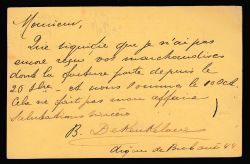 Monsieur,
Que signifie que je n'ai pas
encore reçu vos marchandises
dont la facture porte depuis le
20 et nous sommes le 10 Oct
Cela ne fait pas mon affaire
Salutations
B.
Digue de Brabant 44